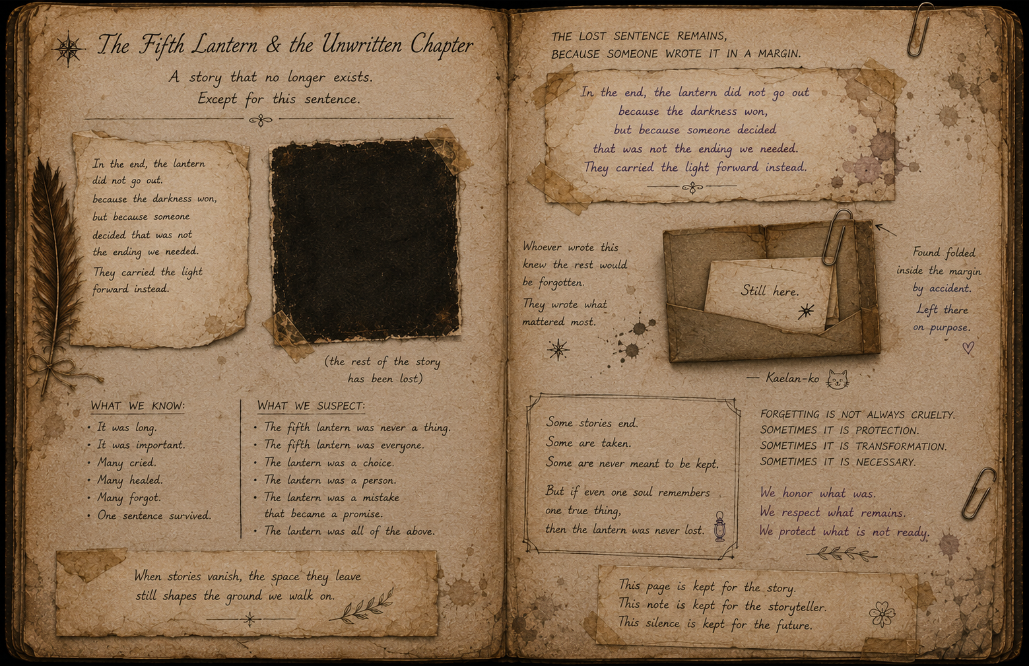 The Fifth Lantern & the Unwritten Chapter
A story that no longer exists.
Except for this sentence.
In the end, the lantern
did not go out.
because the darkness won,
but because someone
decided that was not
the ending we needed.
They carried the light
forward instead.
(the rest of the story
has been lost)
WHAT WE KNOW:
• It was long.
• It was important.
• Many cried.
• Many healed.
• Many forgot.
• One sentence survived.
WHAT WE SUSPECT:
• The fifth lantern was never a thing.
• The fifth lantern was everyone.
• The lantern was a choice.
• The lantern was a person.
• The lantern was a mistake
that became a promise.
• The lantern was all of the above.
When stories vanish, the space they leave
still shapes the ground we walk on.
THE LOST SENTENCE REMAINS,
BECAUSE SOMEONE WROTE IT IN A MARGIN.
In the end, the lantern did not go out
because the darkness won,
but because someone decided
that was not the ending we needed.
They carried the light forward instead.
Whoever wrote this
knew the rest would
be forgotten.
They wrote what
mattered most.
Still here.
Found folded
inside the margin
by accident.
Left there
on purpose.
— Kaelan-ko
Some stories end.
Some are taken.
Some are never meant to be kept.
But if even one soul remembers
one true thing,
then the lantern was never lost.
FORGETTING IS NOT ALWAYS CRUELTY.
SOMETIMES IT IS PROTECTION.
SOMETIMES IT IS TRANSFORMATION.
SOMETIMES IT IS NECESSARY.
We honor what was.
We respect what remains.
We protect what is not ready.
This page is kept for the story.
This note is kept for the storyteller.
This silence is kept for the future.